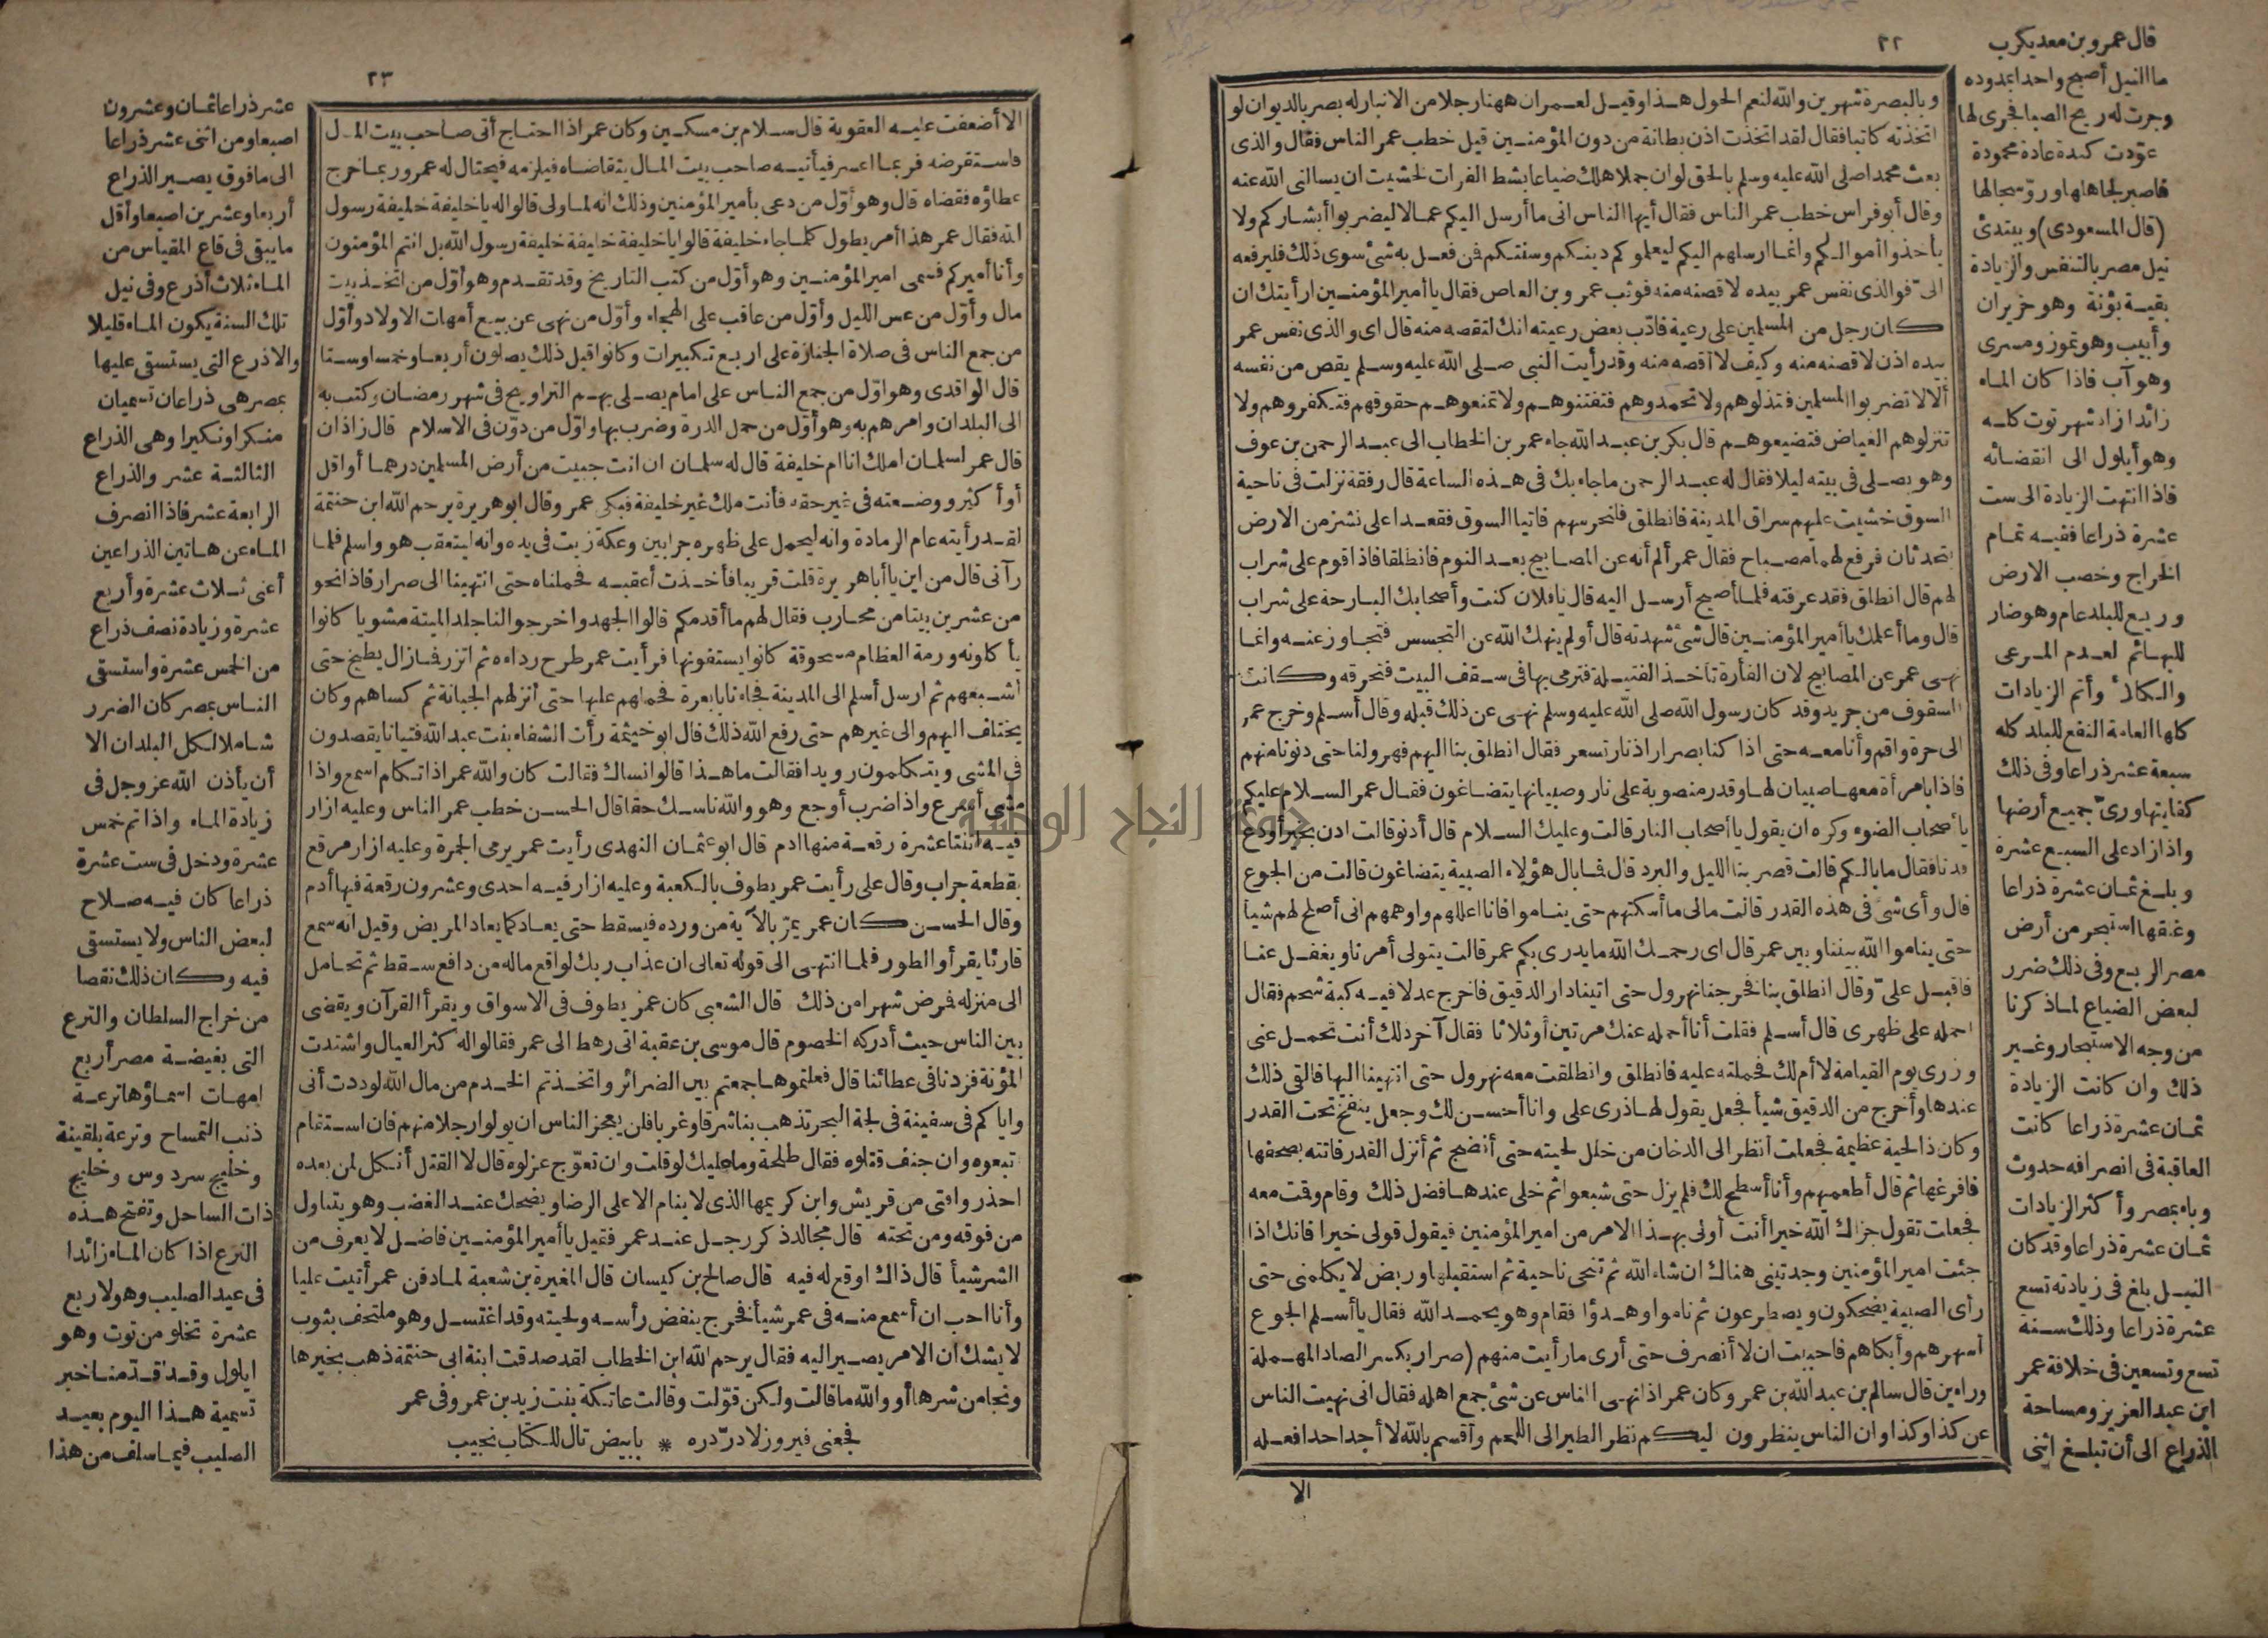 ٢٢
وبالبصرة شهرين والله لنعم الحول هذا وقيل لعمر ان ههنا رجلا من الانبار له بصر بالديوان لو
اتخذته كاتبا فقال لقد اتخذت اذن بطانة من دون المؤمنين قيل خطب عمر الناس فقال والذى
بعث محمدا صلى الله عليه وسلم بالحق لو ان جملا هلك ضياعا بشط الفرات لخشيت ان يسالنى الله عنه
وقال أبو فراس خطب عمر الناس فقال أيها الناس انى ما أرسل اليكم عمالا ليضربوا أبشاركم ولا
يأخذوا أموالكم وانما ارسلهم اليكم ليعلموكم دينكم وسنتكم فمن فعل به شئ سوى ذلك فليرفعه
الىّ فوالذى نفس عمر بيده لاقصنه منه فوثب عمرو بن العاص فقال يا أمير المؤمنين ارأيتك ان
كان رجل من المسلمين على رعية فادّب بعض رعيته انك لتقصه منه قال اى والذى نفس عمر
بيده اذن لاقصنه منه وكيف لا أقصه منه وقد رأيت النبى صلى الله عليه وسلم يقص من نفسه
ألا لا تضربوا المسلمين فتذلوهم ولا تحمدوهم فتفتنوهم ولا تمنعوهم حقوقهم فتكفروهم ولا
تنزلوهم الغياض فتضيعوهم قال بكر بن عبد الله جاء عمر بن الخطاب الى عبد الرحمن بن عوف
وهو يصلى فى بيته ليلا فقال له عبد الرحمن ما جاء بك فى هذه الساعة قال رفقة نزلت فى ناحية
السوق خشيت عليهم سراق المدينة فانطلق فلنحرسهم فاتيا السوق فقعدا على نشز من الارض
يتحدثان فرفع لهما مصباح فقال عمر ألم أنه عن المصابيح بعد النوم فانطلقا فاذا قوم على شراب
لهم قال انطلق فقد عرفته فلما أصبح أرسل اليه قال يا فلان كنت وأصحابك البارحة على شراب
قال وما أعلمك يا أمير المؤمنين قال شئ شهدته قال أولم ينهك الله عن التجسس فتجاوز عنه وانما
نهى عمر عن المصابيح لان الفأرة تأخذ الفتيلة فترمى بها فى سقف البيت فتحرقه وكانت
السقوف من جريد وقد كان رسول الله صلى الله عليه وسلم نهى عن ذلك قبله وقال أسلم وخرج عمر
الى حرة واقم وأنا معه حتى اذا كنا بصرار اذ نار تسعر فقال انطلق بنا اليهم فهرولنا حتى دنونا منهم
فاذا بامرأة معها صبيان لها وقدر منصوبة على نار وصبيانها يتضاغون فقال عمر السلام عليكم
يا أصحاب الضوء وكره ان يقول يا أصحاب النار قالت وعليك السلام قال أدنو قالت ادن بخير أو دع
فدنا فقال ما بالكم قالت قصر بنا الليل والبرد قال فما بال هؤلاء الصبية يتضاغون قالت من الجوع
قال وأى شئ فى هذه القدر قالت مالى ما أسكتهم حتى يناموا فانا اعللهم واوهمهم انى أصلح لهم شيأ
حتى يناموا الله بيننا وبين عمر قال اى رحمك الله ما يدرى بكم عمر قالت يتولى أمرنا ويغفل عنا
فاقبل علىّ وقال انطلق بنا فخرجنا نهرول حتى اتينا دار الدقيق فاخرج عدلا فيه كبة شحم فقال
احمله على ظهرى قال أسلم فقلت أنا أحمله عنك مرتين أو ثلاثا فقال آخر ذلك أنت تحمل عنى
وزرى يوم القيامة لا أم لك فحملته عليه فانطلق وانطلقت معه نهرول حتى انتهينا اليها فالقى ذلك
عندها وأخرج من الدقيق شيأ فجعل يقول لها ذرى على وانا أحسن لك وجعل ينفخ تحت القدر
وكان ذا لحية عظيمة فجعلت أنظر الى الدخان من خلل لحيته حتى أنضج ثم أنزل القدر فاتته بصحفها
فافرغها ثم قال أطعميهم وأنا أسطح لك فلم يزل حتى شبعوا ثم خلى عندها فضل ذلك وقام وقمت معه
فجعلت تقول جزاك الله خيرا أنت أولى بهذا الامر من امير المؤمنين فيقول قولى خيرا فانك اذا
جئت امير المؤمنين وجدتينى هناك ان شاء الله ثم تنحى ناحية ثم استقبلها وربض لا يكلمنى حتى
رأى الصبية يضحكون ويصطرعون ثم ناموا وهدؤا فقام وهو يحمد الله فقال يا أسلم الجوع
أسهرهم وأبكاهم فاحببت ان لا أنصرف حتى أرى ما رأيت منهم (صرار بكسر الصاد المهملة
وراءين قال سالم بن عبد الله بن عمر وكان عمر اذا نهى الناس عن شئ جمع اهله فقال انى نهيت الناس
عن كذا وكذا وان الناس ينظرون ليكم نظر الطير الى اللحم وأقسم بالله لا أجد احدا فعله
الا
قال عمرو بن معد يكرب
ما النيل أصبح واحدا بمدوده
وجرت له ريح الصبا فجرى لها
عوّدت كندة عادة محمودة
فاصبر لجاهلها وروّ سجالها
(قال المسعودى) ويبتدئ
نيل مصر بالتنفس والزيادة
بقية بؤنة وهو حزيران
وأبيب وهو تموز ومسرى
وهو آب فاذا كان الماء
زائدا زاد شهر توت كله
وهو أيلول الى انقضائه
فاذا انتهت الزيادة الى ست
عشرة ذراعا ففيه تمام
الخراج وخصب الارض
وربيع للبلد عام وهو ضار
للبهائم لعدم المرعى
والكلاء وأتم الزيادات
كلها العامة النفع للبلد كله
سبعة عشر ذراعا وفى ذلك
كفايتها ورىّ جميع أرضها
واذا زاد على السبع عشرة
وبلغ ثمان عشرة ذراعا
وغلقها استبحر من أرض
مصر الربع وفى ذلك ضرر
لبعض الضياع لما ذكرنا
من وجه الاستبحار وغير
ذلك وان كانت الزيادة
ثمان عشرة ذراعا كانت
العاقبة فى انصرافه حدوث
وباء بمصر وأكثر الزيادات
ثمان عشرة ذراعا وقد كان
النيل بلغ فى زيادته تسع
عشرة ذراعا وذلك سنة
تسع وتسعين فى خلافة عمر
ابن عبد العزيز ومساحة
الذراع الى أن تبلغ اثنى
٢٣
الا أضعفت عليه العقوبة قال سلام بن مسكين وكان عمر اذا احتاج أتى صاحب بيت المال
فاستقرضه فربما اعسر فيأتيه صاحب بيت المال يتقاضاه فيلزمه فيحتال له عمر وربما خرج
عطاؤه فقضاه قال وهو أوّل من دعى بأمير المؤمنين وذلك انه لما ولى قالوا له يا خليفة خليفة رسول
الله فقال عمر هذا أمر يطول كلما جاء خليفة قالوا يا خليفة خليفة خليفة رسول الله بل انتم المؤمنون
وأنا أميركم فسمى امير المؤمنين وهو أوّل من كتب التاريخ وقد تقدم وهو أوّل من اتخذ بيت
مال وأوّل من عس الليل وأوّل من عاقب على الهجاء وأوّل من نهى عن بيع أمهات الاولاد وأوّل
من جمع الناس فى صلاة الجنازة على اربع تكبيرات وكانوا قبل ذلك يصلون أربعا وخمسا وستا
قال الواقدى وهو اوّل من جمع الناس على امام يصلى بهم التراويح فى شهر رمضان وكتب به
الى البلدان وامرهم به وهو أوّل من حمل الدرة وضرب بها واوّل من دوّن فى الاسلام قال زاذان
قال عمر لسلمان املك انا ام خليفة قال له سلمان ان انت جبيت من أرض المسلمين درهما أو اقل
أو أكثر ووضعته فى غير حقه فأنت ملك غير خليفة فبكى عمر وقال ابو هريرة يرحم الله ابن حنتمة
لقد رأيته عام الرمادة وانه ليحمل على ظهره جرابين وعكة زيت فى يده وانه ليتعقب هو واسلم فلما
رآنى قال من اين يا أبا هريرة قلت قريبا فأخذت أعقبه فحملناه حتى انتهينا الى صرار فاذا نحو
من عشرين بيتا من محارب فقال لهم ما أقدمكم قالوا الجهد واخرجوا لنا جلد الميتة مشويا كانوا
يأكلونه ورمة العظام مسحوقة كانوا يستفونها فرأيت عمر طرح رداءه ثم اتزر فما زال يطبخ حتى
أشبعهم ثم ارسل أسلم الى المدينة فجاءنا بابعرة فحملهم عليها حتى أنزلهم الجبانة ثم كساهم وكان
يختلف اليهم والى غيرهم حتى رفع الله ذلك قال ابو خيثمة رأت الشفاء بنت عبد الله فتيانا يقصدون
فى المشى ويتكلمون رويدا فقالت ما هذا قالوا نساك فقالت كان والله عمر اذا تكلم اسمع واذا
مشى أسرع واذا ضرب أوجع وهو والله ناسك حقا قال الحسن خطب عمر الناس وعليه ازار
فيه اثنتا عشرة رقعة منها ادم قال ابو عثمان النهدى رأيت عمر يرمى الجمرة وعليه ازار مرقع
بقطعة جراب وقال على رأيت عمر يطوف بالكعبة وعليه ازار فيه احدى وعشرون رقعة فيها أدم
وقال الحسن كان عمر يمرّ بالآية من ورده فيسقط حتى يعاد كما يعاد المريض وقيل انه سمع
قارئا يقرأ والطور فلما انتهى الى قوله تعالى ان عذاب ربك لواقع ماله من دافع سقط ثم تحامل
الى منزله فمرض شهرا من ذلك قال الشعبى كان عمر يطوف فى الاسواق ويقرأ القرآن ويقضى
بين الناس حيث أدركه الخصوم قال موسى بن عقبة اتى رهط الى عمر فقالوا له كثر العيال واشتدت
المؤنة فزدنا فى عطائنا قال فعلتموها جمعتم بين الضرائر واتخذتم الخدم من مال الله لوددت أنى
واياكم فى سفينة فى لجة البحر تذهب بنا شرقا وغربا فلن يعجز الناس ان يولوا رجلا منهم فان استقام
تبعوه وان جنف قتلوه فقال طلحة وما عليك لو قلت وان تعوّج عزلوه قال لا القتل أنكل لمن بعده
احذروا فتى من قريش وابن كريمها الذى لا ينام الا على الرضا ويضحك عند الغضب وهو يتناول
من فوقه ومن تحته قال مجالد ذكر رجل عند عمر فقيل يا أمير المؤمنين فاضل لا يعرف من
الشر شيأ قال ذاك اوقع له فيه قال صالح بن كيسان قال المغيرة بن شعبة لما دفن عمر أتيت عليا
وأنا احب ان أسمع منه فى عمر شيأ فخرج ينفض رأسه ولحيته وقد اغتسل وهو ملتحف بثوب
لا يشك ان الامر يصير اليه فقال يرحم الله ابن الخطاب لقد صدقت ابنة ابى حنتمة ذهب بخيرها
ونجا من شرها أو والله ما قالت ولكن قوّلت وقالت عاتكة بنت زيد بن عمرو فى عمر
فجعنى فيروز لا درّ دره * بابيض تال للكتاب نجيب
عشر ذراعا ثمان وعشرون
اصبعا ومن اثنى عشر ذراعا
الى ما فوق يصير الذراع
أربعا وعشرين اصبعا وأقل
ما يبقى فى قاع المقياس من
الماء ثلاث أذرع وفى نيل
تلك السنة يكون الماء قليلا
والاذرع التى يستسقى عليها
بمصر هى ذراعان تسميان
منكرا ونكيرا وهى الذراع
الثالثة عشر والذراع
الرابعة عشر فاذا انصرف
الماء عن هاتين الذراعين
أعنى ثلاث عشرة وأربع
عشرة وزيادة نصف ذراع
من الخمس عشرة واستسقى
الناس بمصر كان الضرر
شاملا لكل البلدان الا
أن يأذن الله عز وجل فى
زيادة الماء واذا تم خمس
عشرة ودخل فى ست عشرة
ذراعا كان فيه صلاح
لبعض الناس ولا يستسقى
فيه وكان ذلك نقصا
من خراج السلطان والترع
التى بغيضة مصر أربع
امهات اسماؤها ترعة
ذنب التمساح وترعة بلقينة
وخليج سردوس وخليج
ذات الساحل وتفتح هذه
الترع اذا كان الماء زائدا
فى عيد الصليب وهو لاربع
عشرة تخلو من توت وهو
ايلول وقد قدمنا خبر
تسمية هذا اليوم بعيد
الصليب فيما سلف من هذا
النجاح الوطنية